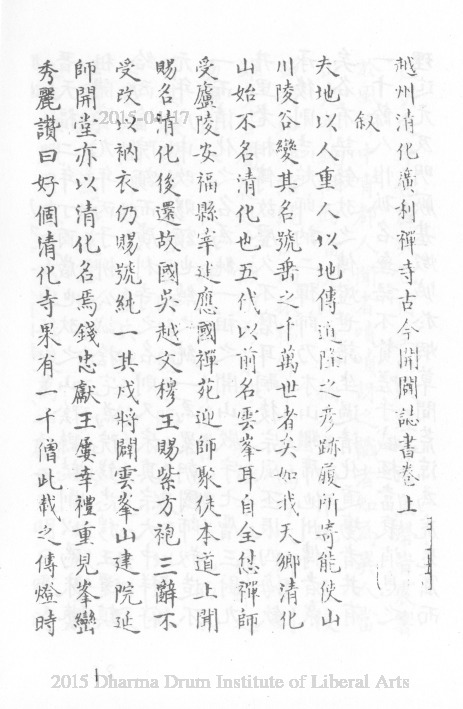 越州清化廣利禪寺古今開闢誌書卷上
叙
夫地以人重人以地傳道隆之彦跡履所嵜能使山
川陵谷變其名號垂之千萬世者矣如我天鄉清化
山始不名清化也五代以前名雲峯耳自全怤禪師
受廬陵安福縣宰建應國禪苑迎師聚徒本道上聞
賜名清化後還故國吳越文穆王賜紫方袍三辭不
受改以衲衣仍賜號純一其戍將闢雲峯山建院延
師開堂亦以清化名焉錢忠獻王屢幸禮重見峯巒
秀麗讃曰好個清化寺果有一千僧此載之傳燈時
1
2015-04-17
2015 Dharma Drum Institute of Liberal Arts